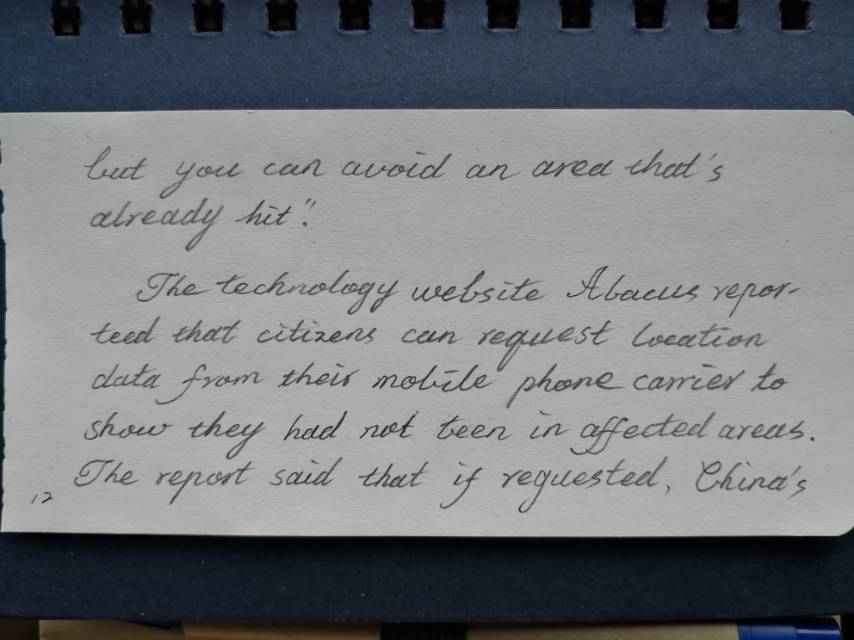 but you can avoid an area that's
already hit."
The technology website Abacus repor-
ted that citizens can request location
data from their mobile phone carrier to
show they had not been in affected areas.
The report said that if requested, China's
12